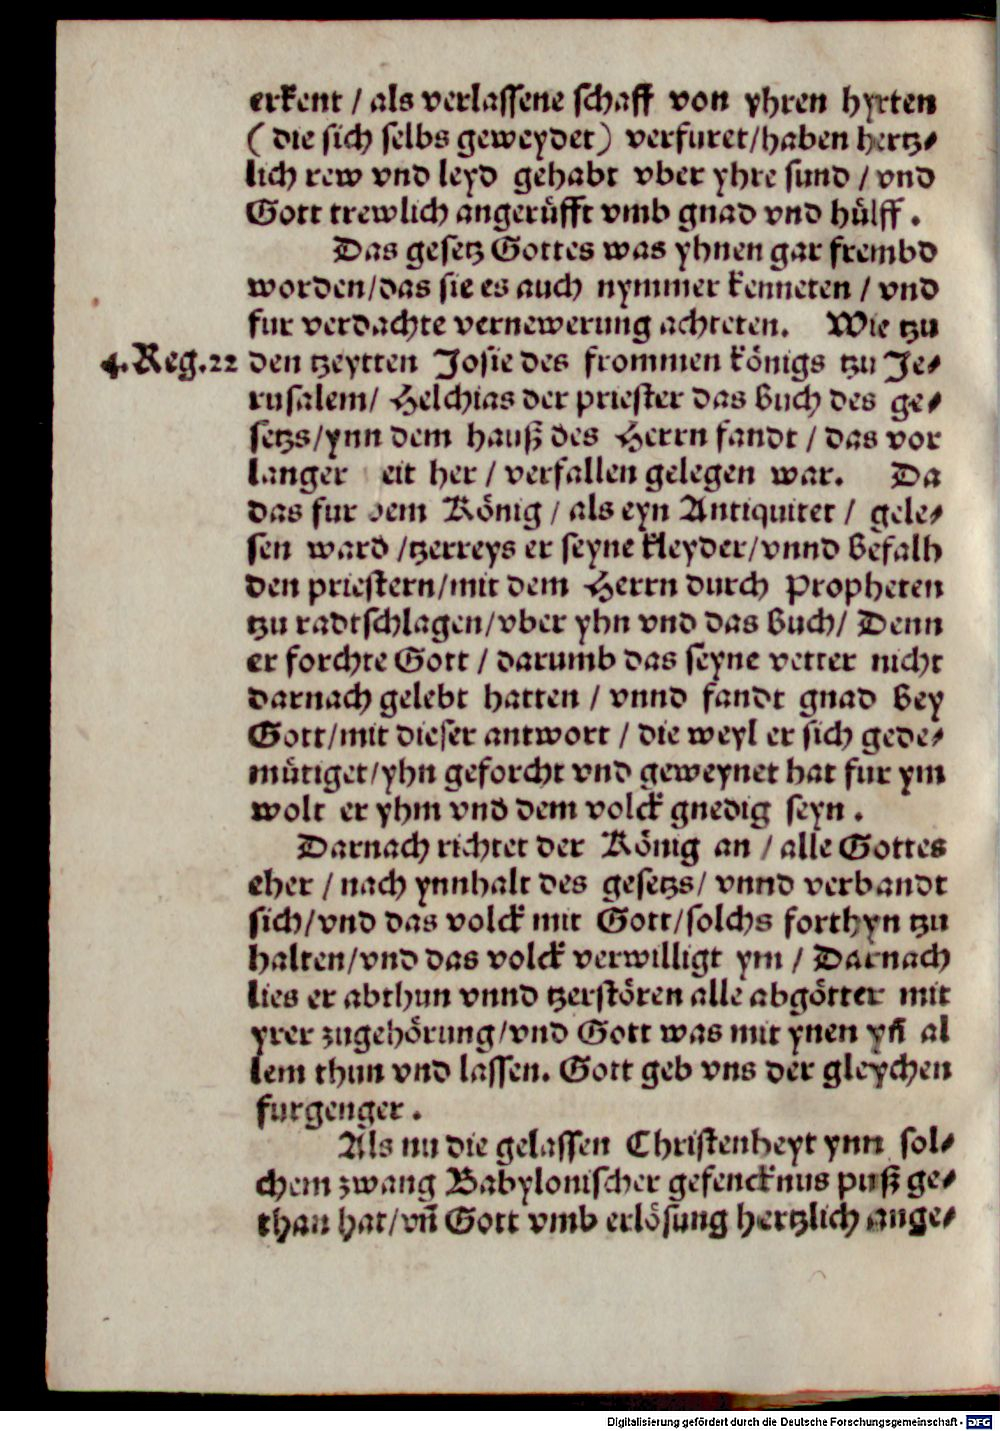 erkent / als verlassene schaff von yhren hyrten
( die sich selbs geweydet ) verfuret/haben hertz⸗
lich rew vnd leyd gehabt vber yhre sund / vnd
Gott trewlich angerůfft vmb gnad vnd hůlff .
Das gesetz Gottes was yhnen gar frembd
worden/das sie es auch nymmer kenneten / vnd
fur verdachte vernewerung achteten. Wie tzu
4. Reg. 22 den tzeytten Josie des frommen königs tzu Je⸗
rusalem/ Helchias der priester das buch des ge⸗
setzs/ynn dem hauß des Herrn fandt / das vor
langer eit her / verfallen gelegen war. Da
das fur dem König / als eyn Antiquitet / gele⸗
sen ward /tzerreys er seyne kleyder/vnnd befalh
den priestern/mit dem Herrn durch Propheten
tzu radtschlagen/vber yhn vnd das buch/ Denn
er forchte Gott / darumb das seyne vetter nicht
darnach gelebt hatten / vnnd fandt gnad bey
Gott/mit dieser antwort / die weyl er sich gede⸗
můtiget/yhn geforcht vnd geweynet hat fur ym
wolt er yhm vnd dem volck gnedig seyn .
Darnach richtet der König an / alle Gottes
eher / nach ynnhalt des gesetzs/ vnnd verbandt
sich/vnd das volck mit Gott/solchs forthyn tzu
halten/vnd das volck verwilligt ym / Darnach
lies er abthun vnnd tzerstören alle abgötter mit
yrer zugehörung/vnd Gott was mit ynen yn̄ al
lem thun vnd lassen. Gott geb vns der gleychen
furgenger .
Als nu die gelassen Christenheyt ynn sol⸗
chem zwang Babylonischer gefencknus puß ge⸗
than hat/vn̄ Gott vmb erlösung hertzlich ange⸗
Digitalisierung gefördert durch die Deutsche Forschungsgemeinschaft - DFG